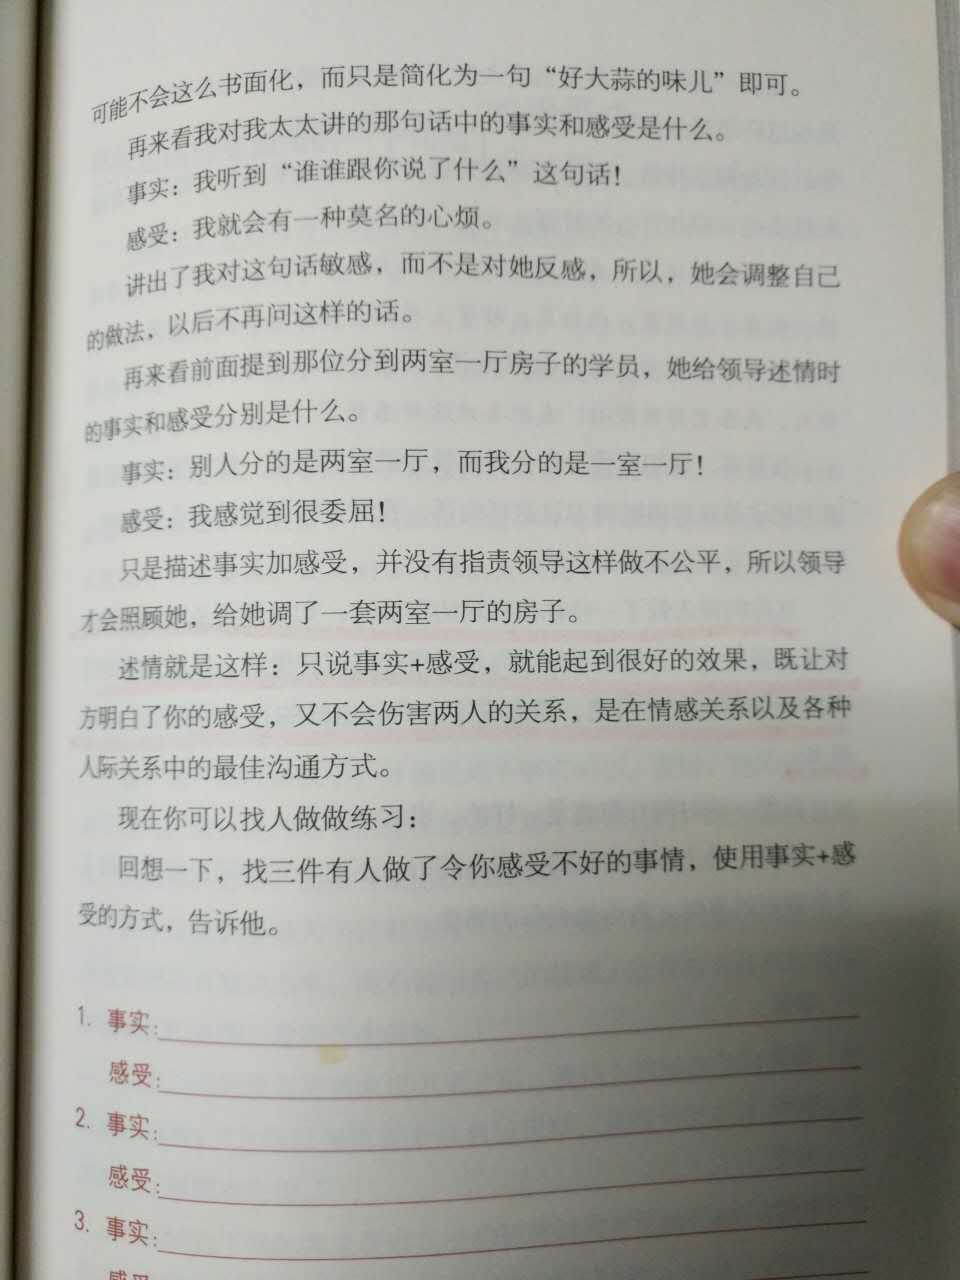 可能不会这么书面化，而只是简化为一句“好大蒜的味儿”即可。
再来看我对我太太讲的那句话中的事实和感受是什么。
事实：我听到“谁谁跟你说了什么”这句话！
感受：我就会有一种莫名的心烦。
讲出了我对这句话敏感，而不是对她反感，所以，她会调整自己
的做法，以后不再问这样的话。
再来看前面提到那位分到两室一厅房子的学员，她给领导述情时
的事实和感受分别是什么。
事实：别人分的是两室一厅，而我分的是一室一厅！
感受：我感觉到很委屈！
只是描述事实加感受，并没有指责领导这样做不公平，所以领导
才会照顾她，给她调了一套两室一厅的房子。
述情就是这样：只说事实+感受，就能起到很好的效果，既让对
方明白了你的感受，又不会伤害两人的关系，是在情感关系以及各种
人际关系中的最佳沟通方式。
现在你可以找人做做练习：
回想一下，找三件有人做了令你感受不好的事情，使用事实+感
受的方式，告诉他。
1. 事实：
感受：
2. 事实：
感受：
3. 事实：
感受